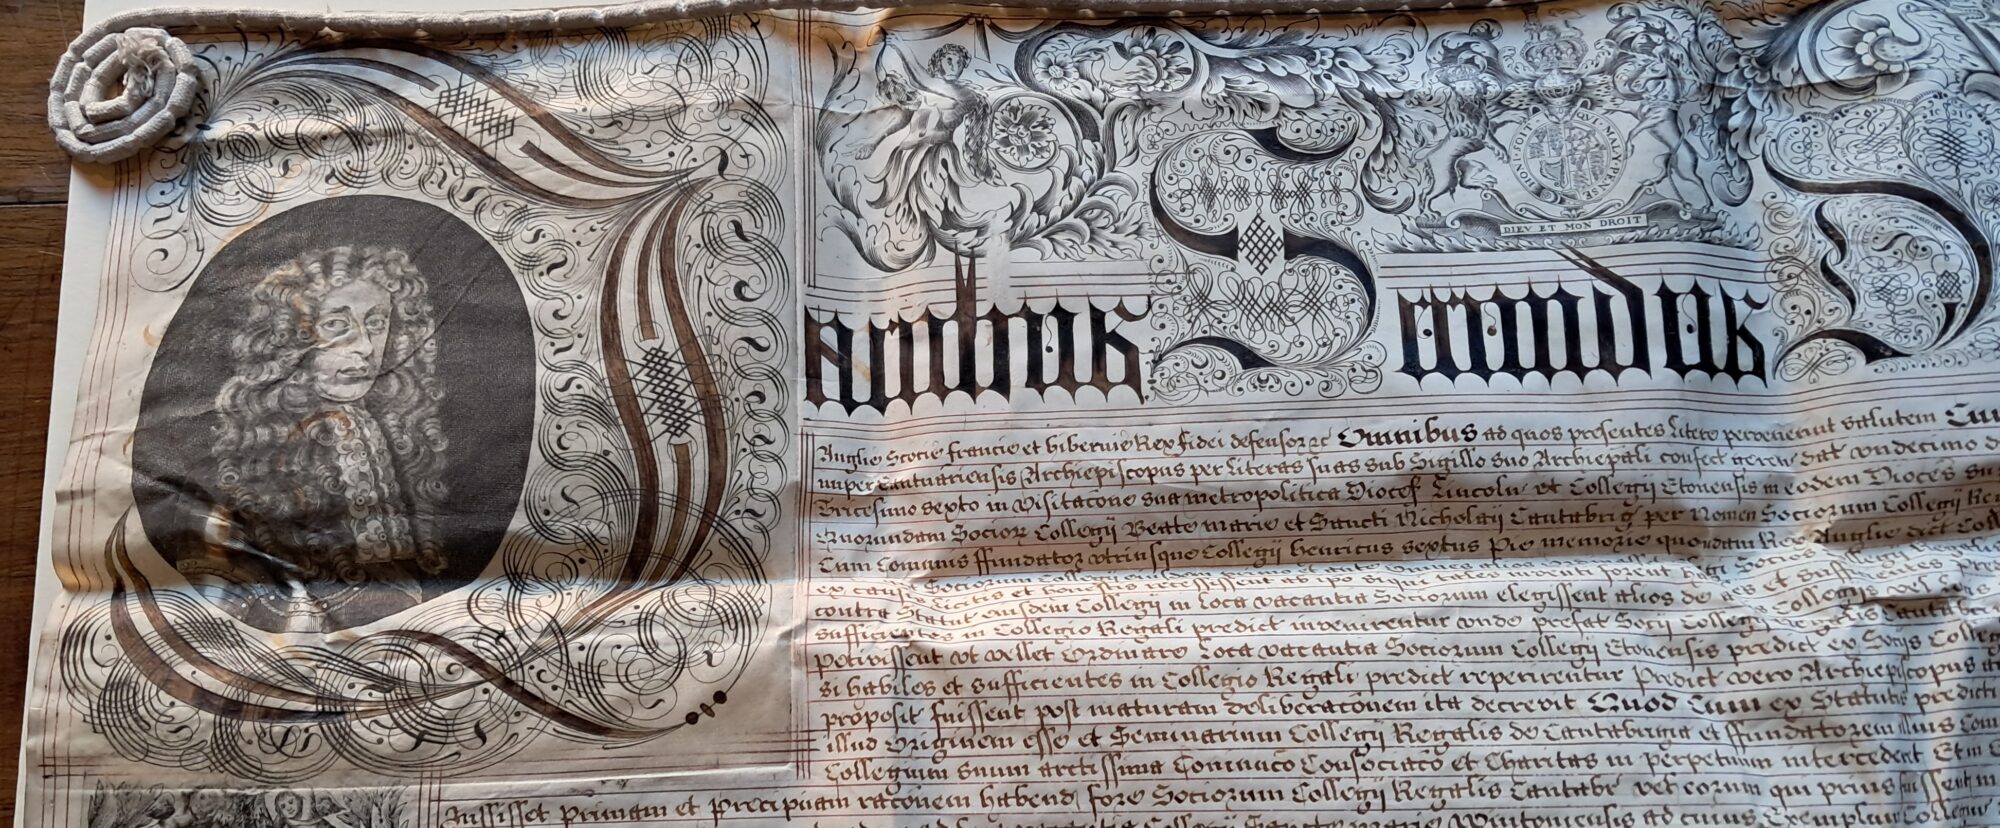 HONI SOIT QUI MAL Y PENSE
DIEV ET MON DROIT
Jacobus Secundus D
Anglie Scotie francie et hibernie Rex fidei defensor &c Omnibus ad quos presentes litere pervenerint salutem Cum
nuper Cantuariensis Archiepiscopus per literas suas sub Sigillo suo Archiepali confect geren dat undecimo d
Tricesimo Sexto in Visitacone sua metropolitica Dioces Lincoln et Collegij Etonensis in eodem Dioces
Quorundam Socior Collegij Beate marie et Sancti Nicholaij Cantabrig per Nomen Sociorum Collegij
Cum Comunis ffundator utriusque Collegij henricus sextus Pie memorie quondam Rex Anglie dict Coll
ex causis licitis et honestis
contra Statut eiusdem Collegij in loca vacantia Sociorum elegissent alios de
sufficientes in Collegio Regali predict invenirentur unde prefat Socij Collegij Regalis Cantabr
Petivissent ut vellet Ordinare loca vacantia Sociorum Collegij Etonensis predict ex Socijs Colleg
si habiles et sufficientes in Collegio Regali predict reperirentur Predict vero Archiepiscopus
proposit fuissent post maturam deliberaconem ita decrevit Quod Cum ex Statutis predicti
illud Originem esse et Seminarium Collegij Regalis de Cantabrigia et ffundatorem illius
Collegium suum arctissima Coniuncco Consociaco et Charitas in perpetuum intercederet Et in
Iussisset Primam et precipuam raconem habend fore Sociorum Collegij Regalis Cantabr vel eorum qui prius fuissent in
vacantia Collegij Sancte Marie Wintoniensis ad cuius Exemplar Colleg